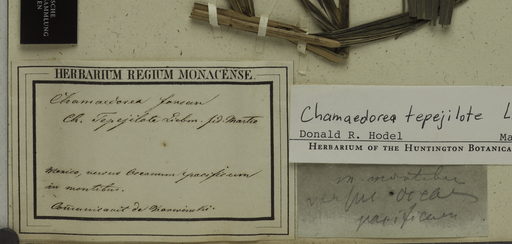 SCHE
SAMMLUNG
EN
HERBARIUM REGIUM MONACENSE.
Chamaedorea forsan
Ch. Tepejilote Liebm. fid Martio
Mexico, versus Oceanum pacificum
in montibus.
Communicavit de Karwinski.
Chamaedorea tepejilote L
Donald R. Hodel Ma
HERBARIUM OF THE HUNTINGTON BOTANICA
in montibus
versus Ocea
pacificum